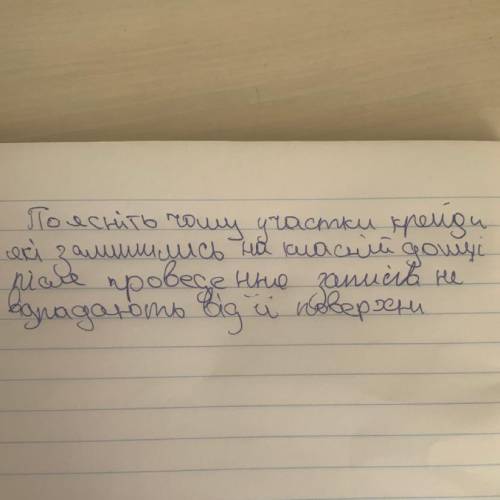 Поясніть чому участки крейди
які залишились на класній дошці
після проведенню записів не
відпадають від її поверхни